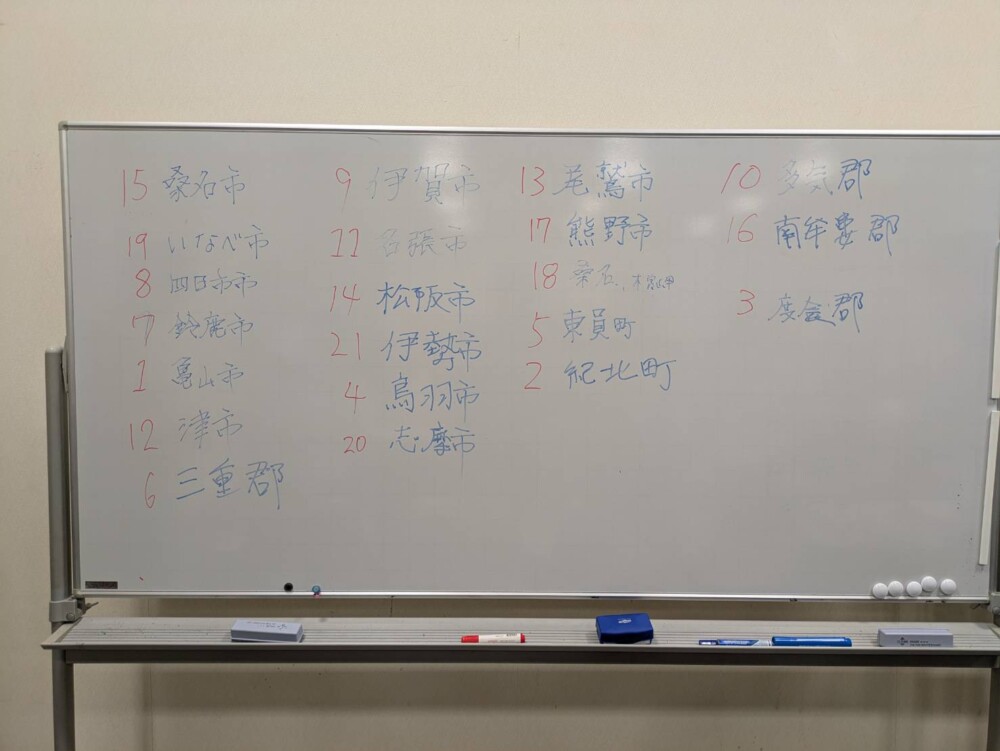 15 桑名市
19 いなべ市
8 四日市市
7 鈴鹿市
1 亀山市
12 津市
6 三重郡
9 伊賀市
11 名張市
14 松阪市
21 伊勢市
4 鳥羽市
20 志摩市
13 尾鷲市
17 熊野市
18 桑名
5 東員町
2 紀北町
10 多気郡
16 南牟婁郡
3 度会郡